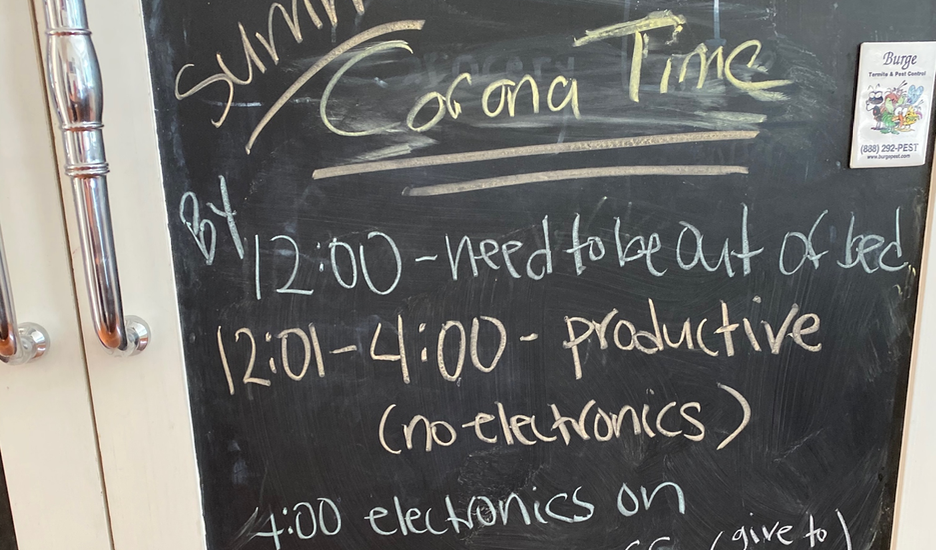 Corona Time
By 12:00 - need to be out of bed
12:01 - 4:00 - productive
(no electronics)
4:00 electronics on
(give to)
Burge
Termite & Pest Control
(888) 292-PEST
www.burgepest.com